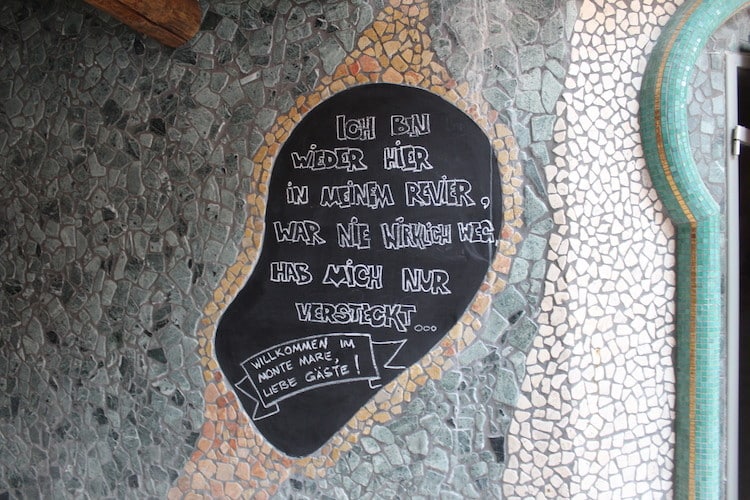 ICH BIN
WIEDER HIER
IN MEINEM REVIER,
WAR NIE WIRKLICH WEG,
HAB MICH NUR
VERSTECKT...
WILLKOMMEN IM
MONTE MARE,
LIEBE GÄSTE!